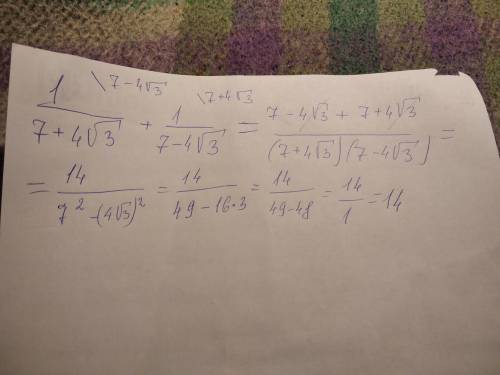 1/(7+4√3) \7-4√3 + 1/(7-4√3) \7+4√3 = (7-4√3+7+4√3)/((7+4√3)(7-4√3)) =
= 14/(7²-(4√3)²) = 14/(49-16·3) = 14/(49-48) = 14/1 = 14